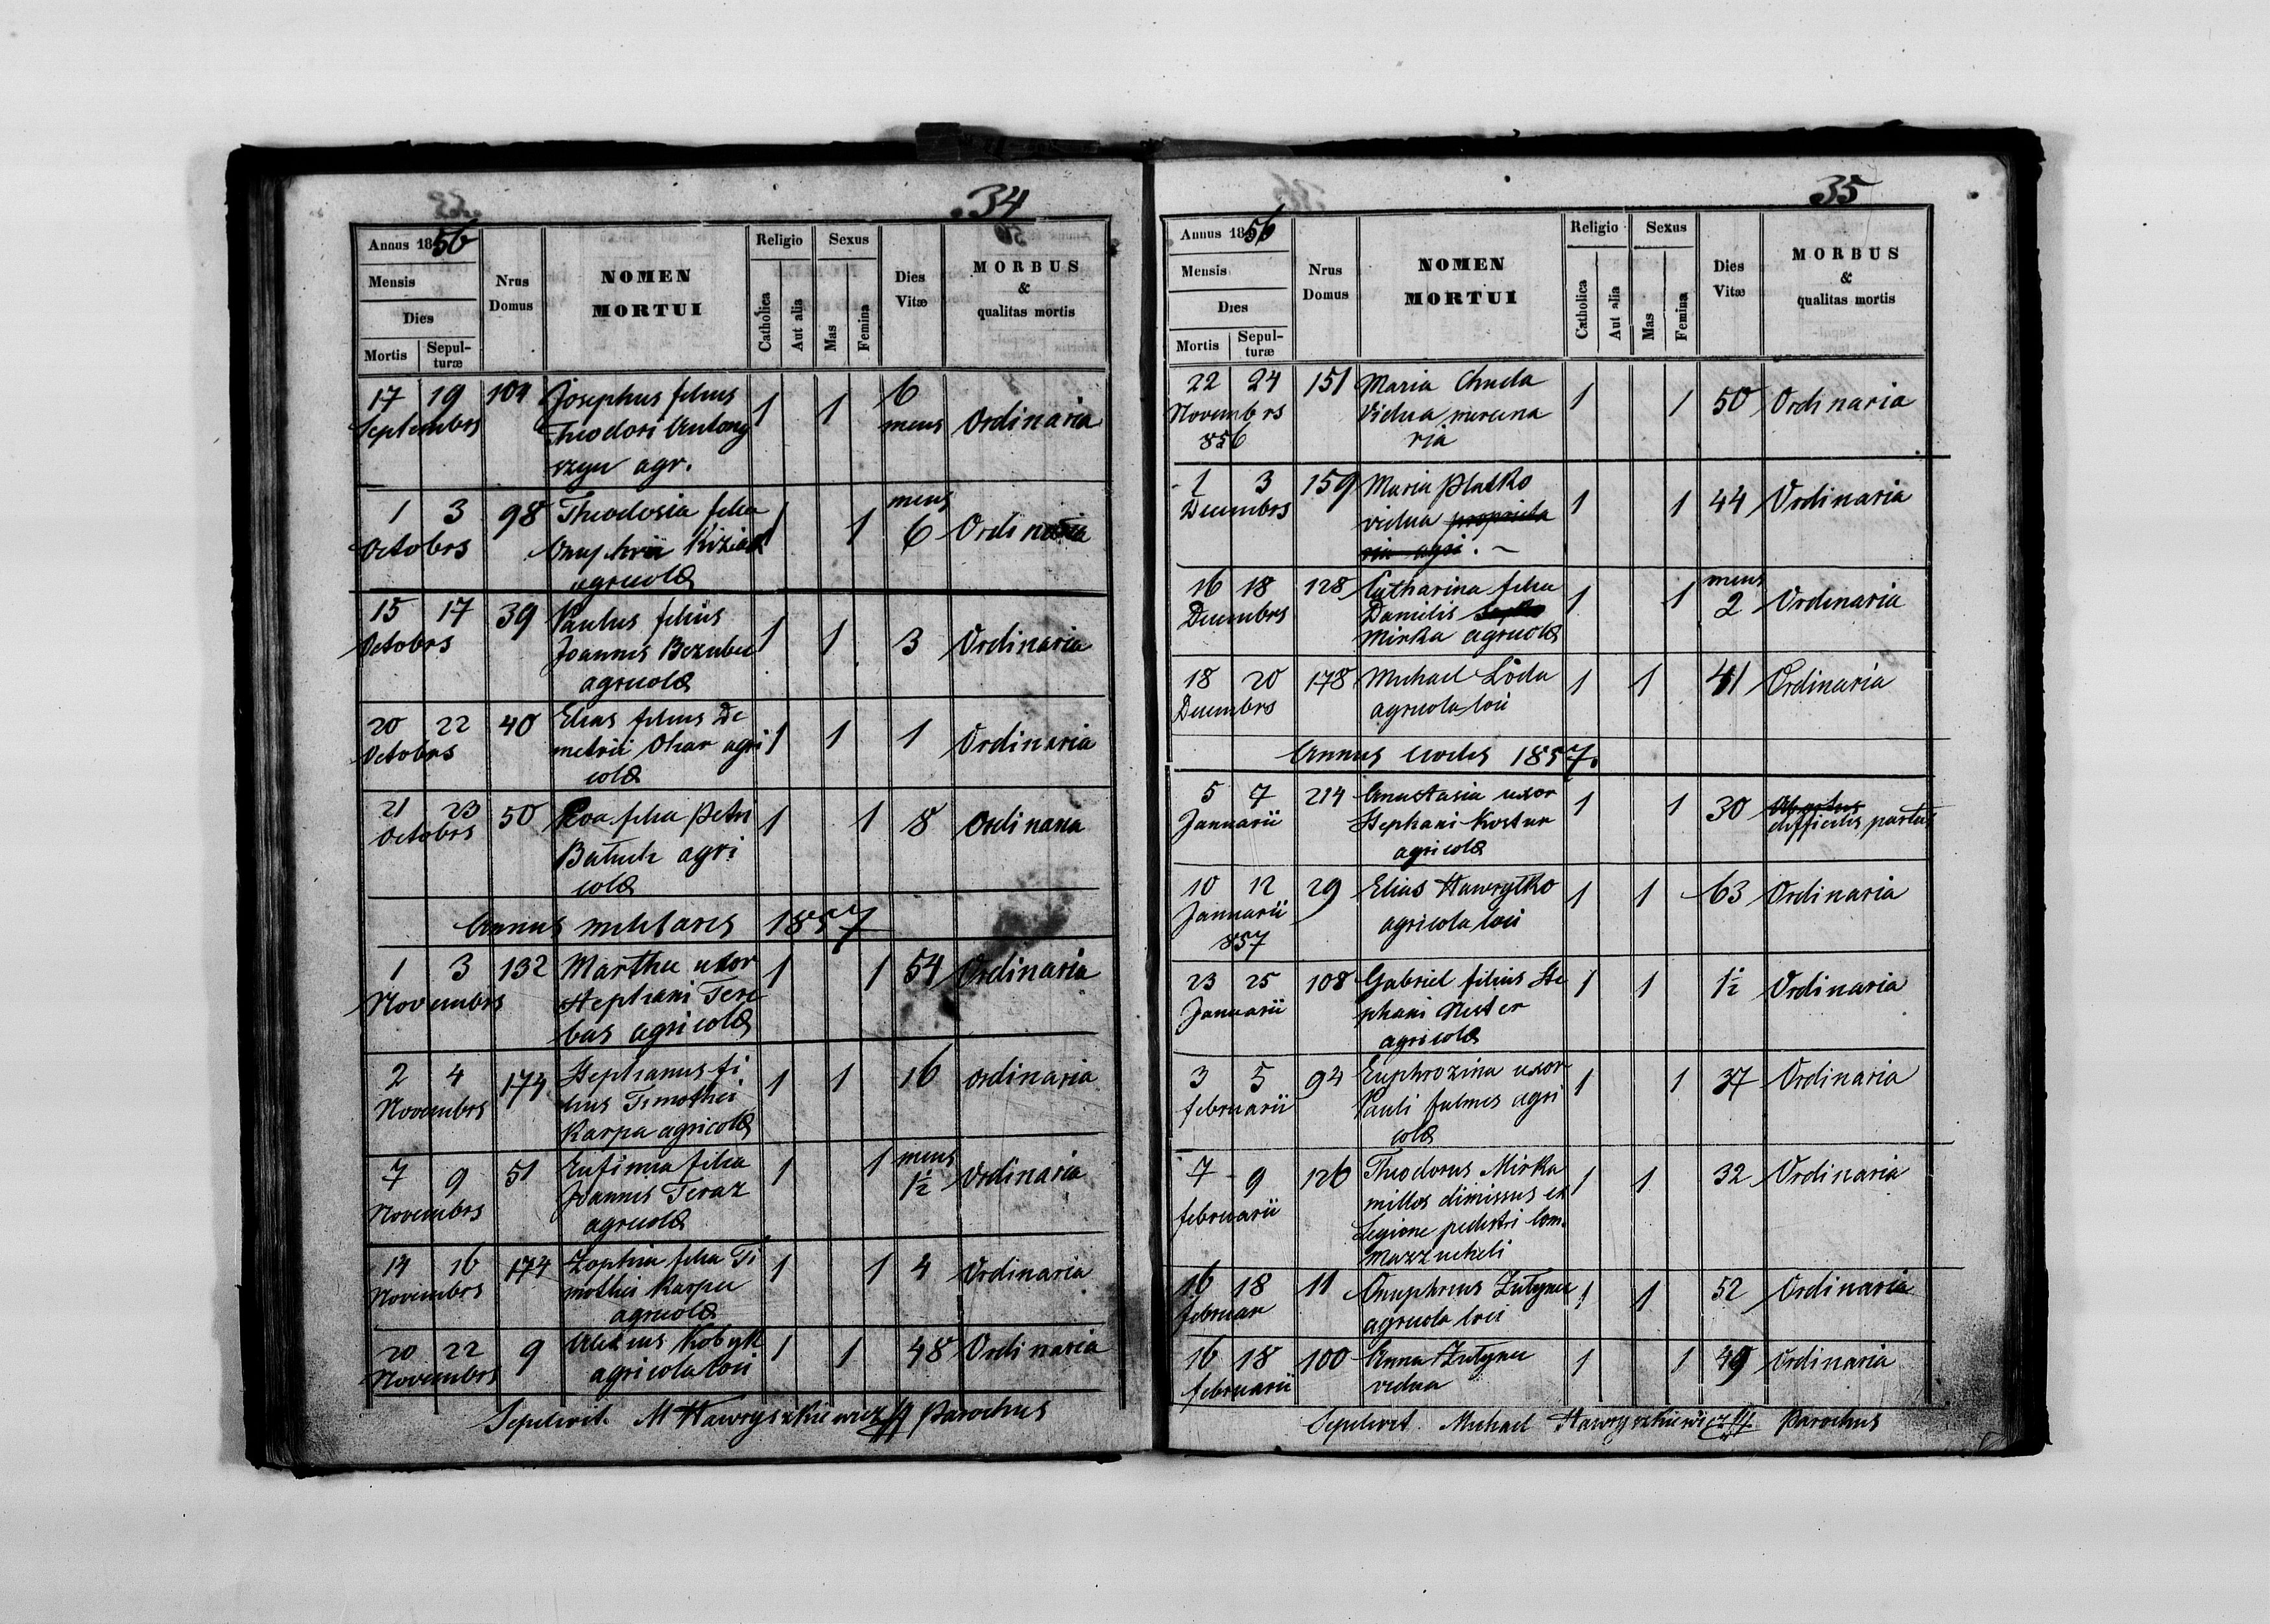 34
Annus 1856
Mensis
Dies
Mortis
Sepul-
turæ
Nrus
Domus
NOMEN
MORTUI
Religio
Catholica
Aut alia
Sexus
Mas
Femina
Dies
Vitæ
MORBUS
&
qualitas mortis
17 19 Septembrs
Josephus filius
Theodori
agr.
1 1 6 mens Ordinaria
1 3 Octobrs 98
Theodosia filia
Onuphrii
agricolæ
1 1 mens 6 Ordinaria
15 17 Octobrs 39
Paulus filius
Joannis
agricolæ
1 1 3 Ordinaria
20 22 Octobrs 40
Elias filius De
metrii Ohar agri
colæ
1 1 1 Ordinaria
21 23 Octobrs 50
Eva filia Petri
agri
colæ
1 1 8 Ordinaria
Annus militaris 1857
1 3 Novembrs 132
Martha uxor
Stephani Tere
bus agricolæ
1 1 54 Ordinaria
2 4 Novembrs 174
Stephanus fi
lius Timothei
Karpa agricolæ
1 1 16 ordinaria
7 9 Novembrs 51
Eufimia filia
Joannis Teraz
agricolæ
1 1 mens 1½ Ordinaria
14 16 Novembrs 174
Zophia filia Ti
mothei Karpa
agricolæ
1 1 4 Ordinaria
20 22 Novembrs 9
Alexius Kobyk
agricola loci
1 1 48 Ordinaria
Sepelivit. M Hawryszkiewicz Parochus
35
Annus 1856
Mensis
Dies
Mortis
Sepul-
turæ
Nrus
Domus
NOMEN
MORTUI
Religio
Catholica
Aut alia
Sexus
Mas
Femina
Dies
Vitæ
MORBUS
&
qualitas mortis
22 24 Novembrs 856 151
Maria Chuda
vidua mercena
ria
1 1 50 Ordinaria
1 3 Decembrs 159
Maria Platko
vidua proprieta
ria agri. ~
1 1 44 Ordinaria
16 18 Decembrs 128
Catharina filia
Danielis
Mirka agricolæ
1 1 mens 2 Ordinaria
18 20 Decembrs 178
Michael Loda
agricola loci
1 1 41 Ordinaria
Annus 1857.
5 7 Januarii 214
Anastasia uxor
Stephani Kostur
agricolæ
1 1 30 Abortus
difficilis partus
10 12 Januarii 857 29
Elias Hawrytko
agricola loci
1 1 63 Ordinaria
23 25 Januarii 108
Gabriel filius Ste
phani Nester
agricolæ
1 1 1½ Ordinaria
3 5 februarii 94
Euphrozina uxor
Pauli fulmes agri
colæ
1 1 37 Ordinaria
7 9 februarii 126
Theodorus Mirka
miles dimissus ex
Legione pedestri Com.
Mazzucheli
1 1 32 Ordinaria
16 18 februar 11
Onuphrius Zutynu
agricola loci
1 1 52 Ordinaria
16 18 februarii 100
Anna Zutynu
vidua
1 1 49 Ordinaria
Sepelivit. Michael Hawryszkiewicz Parochus